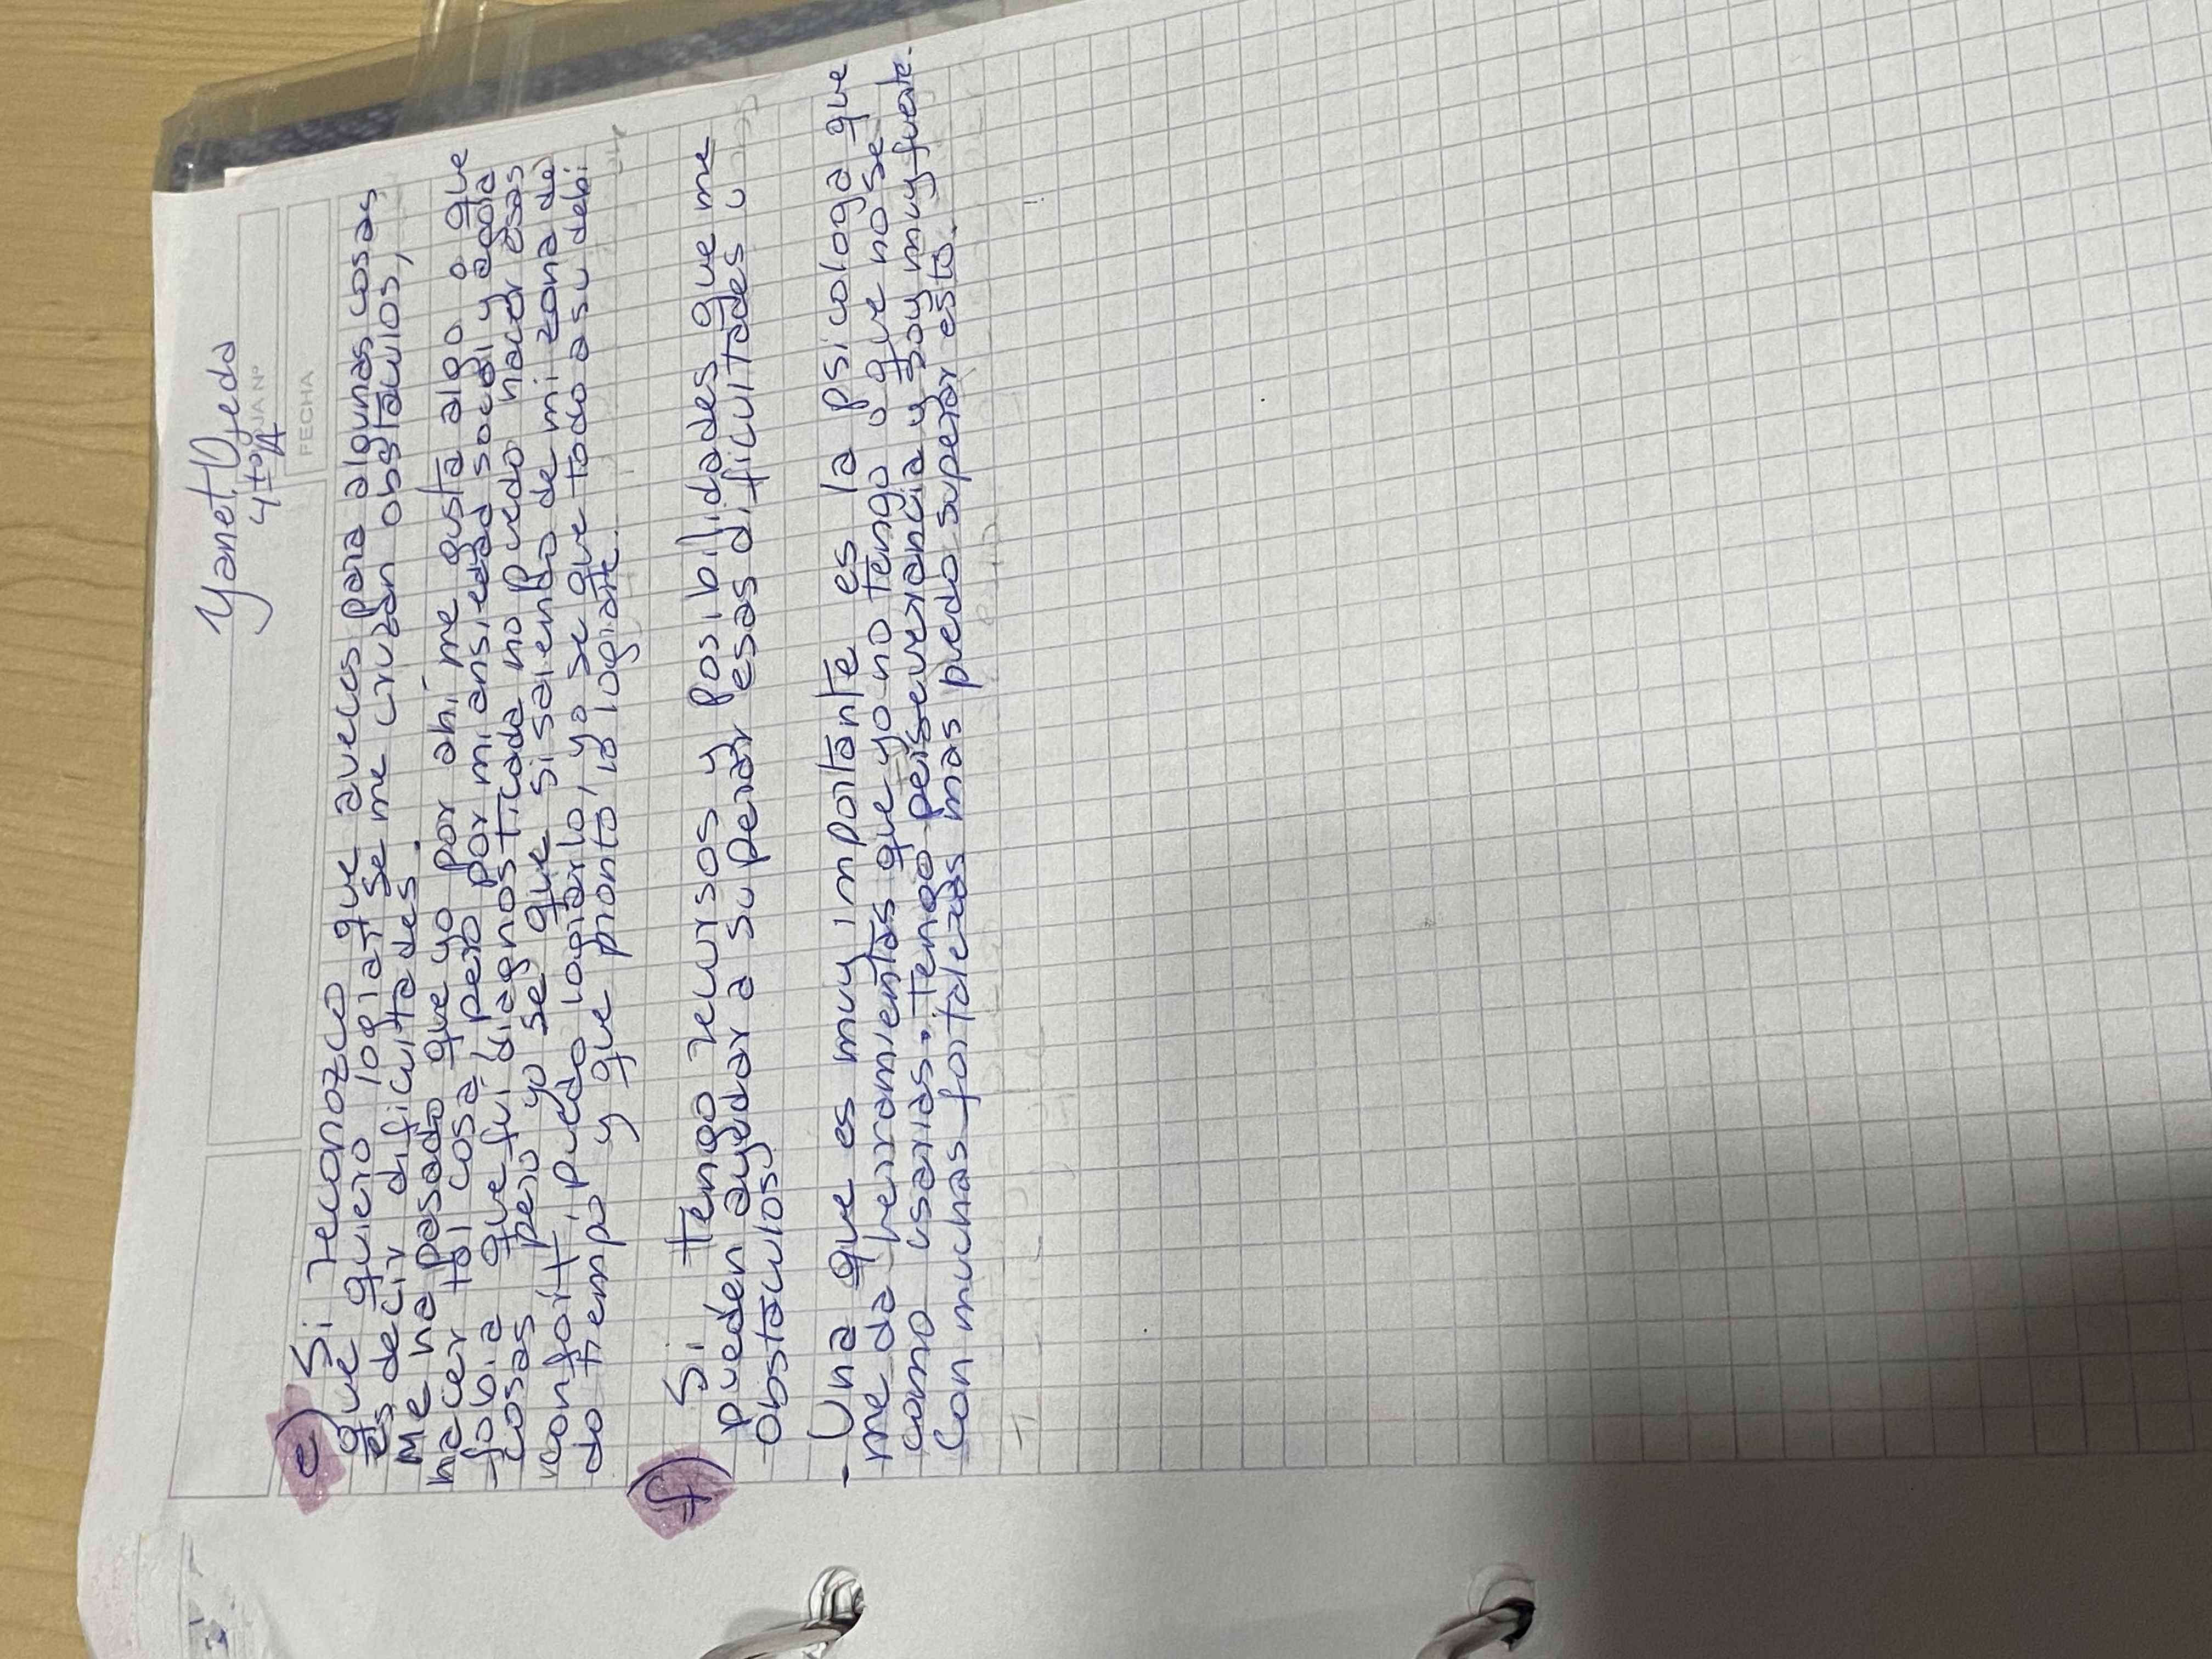 Yanet Ojeda
4to A
HOJA Nº
FECHA
e) Si reconozco que aveces para algunas cosas
que quiero lograr se me cruzan obstaculos,
es decir dificultades.
Me ha pasado que yo por ahi me gusta algo o que
hacer tal cosa, pero por mi ansiedad social y agora
fobia que fui diagnosticada no puedo hacer esas
cosas pero yo se que si saiendo de mi zona de
confort, puedo lograrlo, yo se que todo a su debi
do tiempo y que pronto, lo lograre.
f) Si tengo recursos y posibilidades que me
pueden ayudar a superar esas dificultades u
obstaculos.
- Una que es muy importante es la psicologa que
me da herramientas que yo no tengo u que no se
como usarlas. Tengo perseverancia y soy muy fuerte.
Con muchas fortalezas mas puedo superar esto.